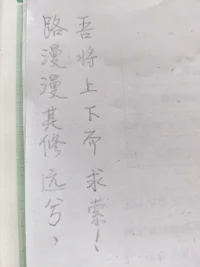 路漫漫其修远兮、
吾将上下而求索！